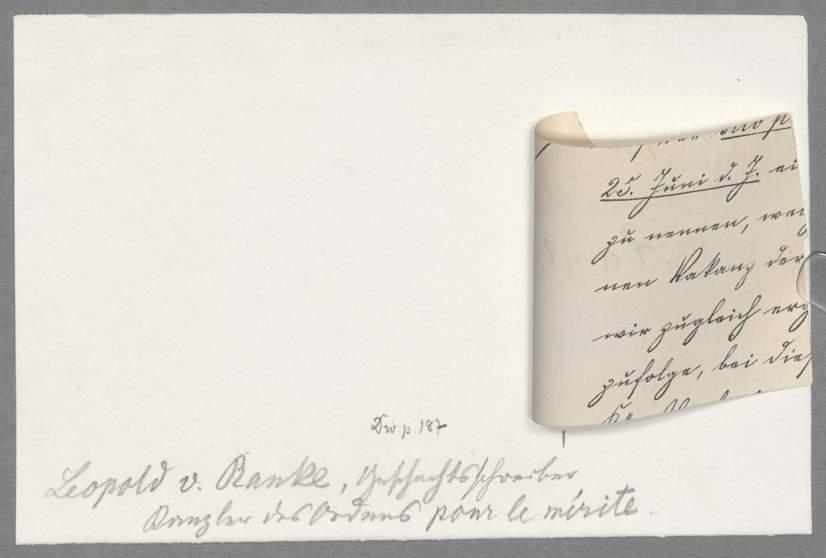 25. Juni d. J. ei
zu nennen, we
nen Vakanz der
wir zugleich erg
zufolge, bei die
p. 187
Leopold v. Ranke, Geschichtsschreiber
Kanzler des Ordens pour le mérite.